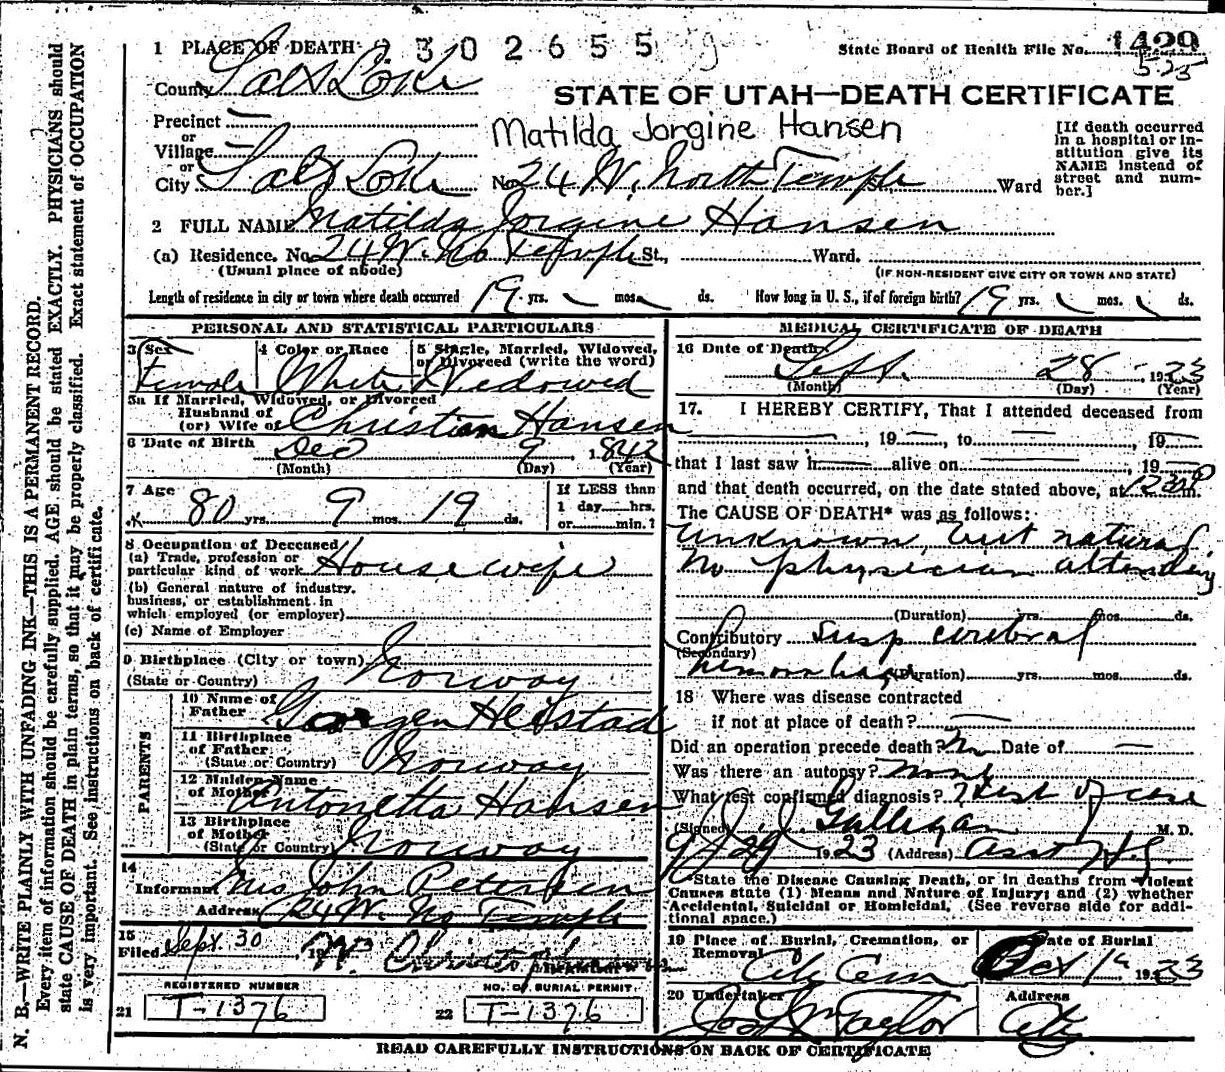 1 PLACE OF DEATH 2302655 9
State Board of Health File No. 1429
525
County Salt Lake
STATE OF UTAH—DEATH CERTIFICATE
Precinct —
or
Village —
or
City Salt Lake
Matilda Jorgine Hansen
No. 24 W. North Temple St. Ward
[If death occurred in a hospital or institution give its NAME instead of street and number.]
2 FULL NAME Matilda Jorgine Hansen
(a) Residence. No. 24 W. No Temple St., Ward.
(Usual place of abode)
(IF NON-RESIDENT GIVE CITY OR TOWN AND STATE)
Length of residence in city or town where death occurred 19 yrs. mos. ds. How long in U. S., if of foreign birth? 19 yrs. mos. ds.
PERSONAL AND STATISTICAL PARTICULARS
3 Sex Female
4 Color or Race White
5 Single, Married, Widowed, or Divorced (write the word) Widowed
5a If Married, Widowed, or Divorced
Husband of
(or) Wife of Christian Hansen
6 Date of Birth Dec 9, 1842
(Month) (Day) (Year)
7 Age 80 yrs. 9 mos. 19 ds.
If LESS than
1 day hrs.
or min.?
8 Occupation of Deceased
(a) Trade, profession or
particular kind of work Housewife
(b) General nature of industry,
business, or establishment in
which employed (or employer)
(c) Name of Employer
9 Birthplace (City or town)
(State or Country) Norway
PARENTS
10 Name of
Father Gorgen Heistad
11 Birthplace
of Father
(State or Country) Norway
12 Maiden Name
of Mother Antonetta Hansen
13 Birthplace
of Mother
(State or Country) Norway
14
Informant Mrs John Petersen
Address 24 W. No Temple
15
Filed Sept. 30, 19
REGISTERED NUMBER
21 T-1376
NO. OF BURIAL PERMIT
22 T-1376
MEDICAL CERTIFICATE OF DEATH
16 Date of Death Sept. 28 1923
(Month) (Day) (Year)
17. I HEREBY CERTIFY, That I attended deceased from
—, 19—, to —, 19—
that I last saw h— alive on —, 19—
and that death occurred, on the date stated above, at 1230 P m.
The CAUSE OF DEATH* was as follows:
Unknown, but natural
No physician attending
(Duration) yrs. mos. ds.
Contributory Susp cerebral
(Secondary)
hemorrhage (Duration) yrs. mos. ds.
18 Where was disease contracted
if not at place of death? —
Did an operation precede death? No Date of —
Was there an autopsy? None
What test confirmed diagnosis? Hist of case
(Signed) J. J. Galligan M. D.
9/29 1923 (Address) Asst H.
State the Disease Causing Death, or in deaths from Violent
Causes state (1) Means and Nature of Injury; and (2) whether
Accidental, Suicidal or Homicidal. (See reverse side for addi-
tional space.)
19 Place of Burial, Cremation, or
Removal City Cem
Date of Burial
Oct 1st 1923
20 Undertaker Jos Wm Taylor
Address City
READ CAREFULLY INSTRUCTIONS ON BACK OF CERTIFICATE
N. B.—WRITE PLAINLY WITH UNFADING INK—THIS IS A PERMANENT RECORD.
Every item of information should be carefully supplied. AGE should be stated EXACTLY. PHYSICIANS should
state CAUSE OF DEATH in plain terms, so that it may be properly classified. Exact statement of OCCUPATION
is very important. See instructions on back of certificate.